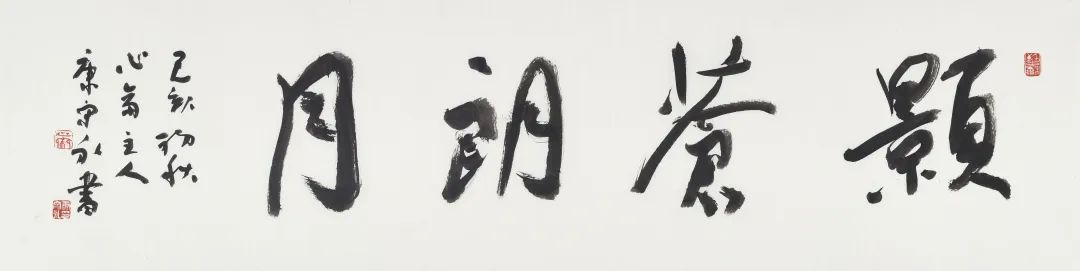 顥蒼朗月
己亥初秋
心斋主人
康守永書